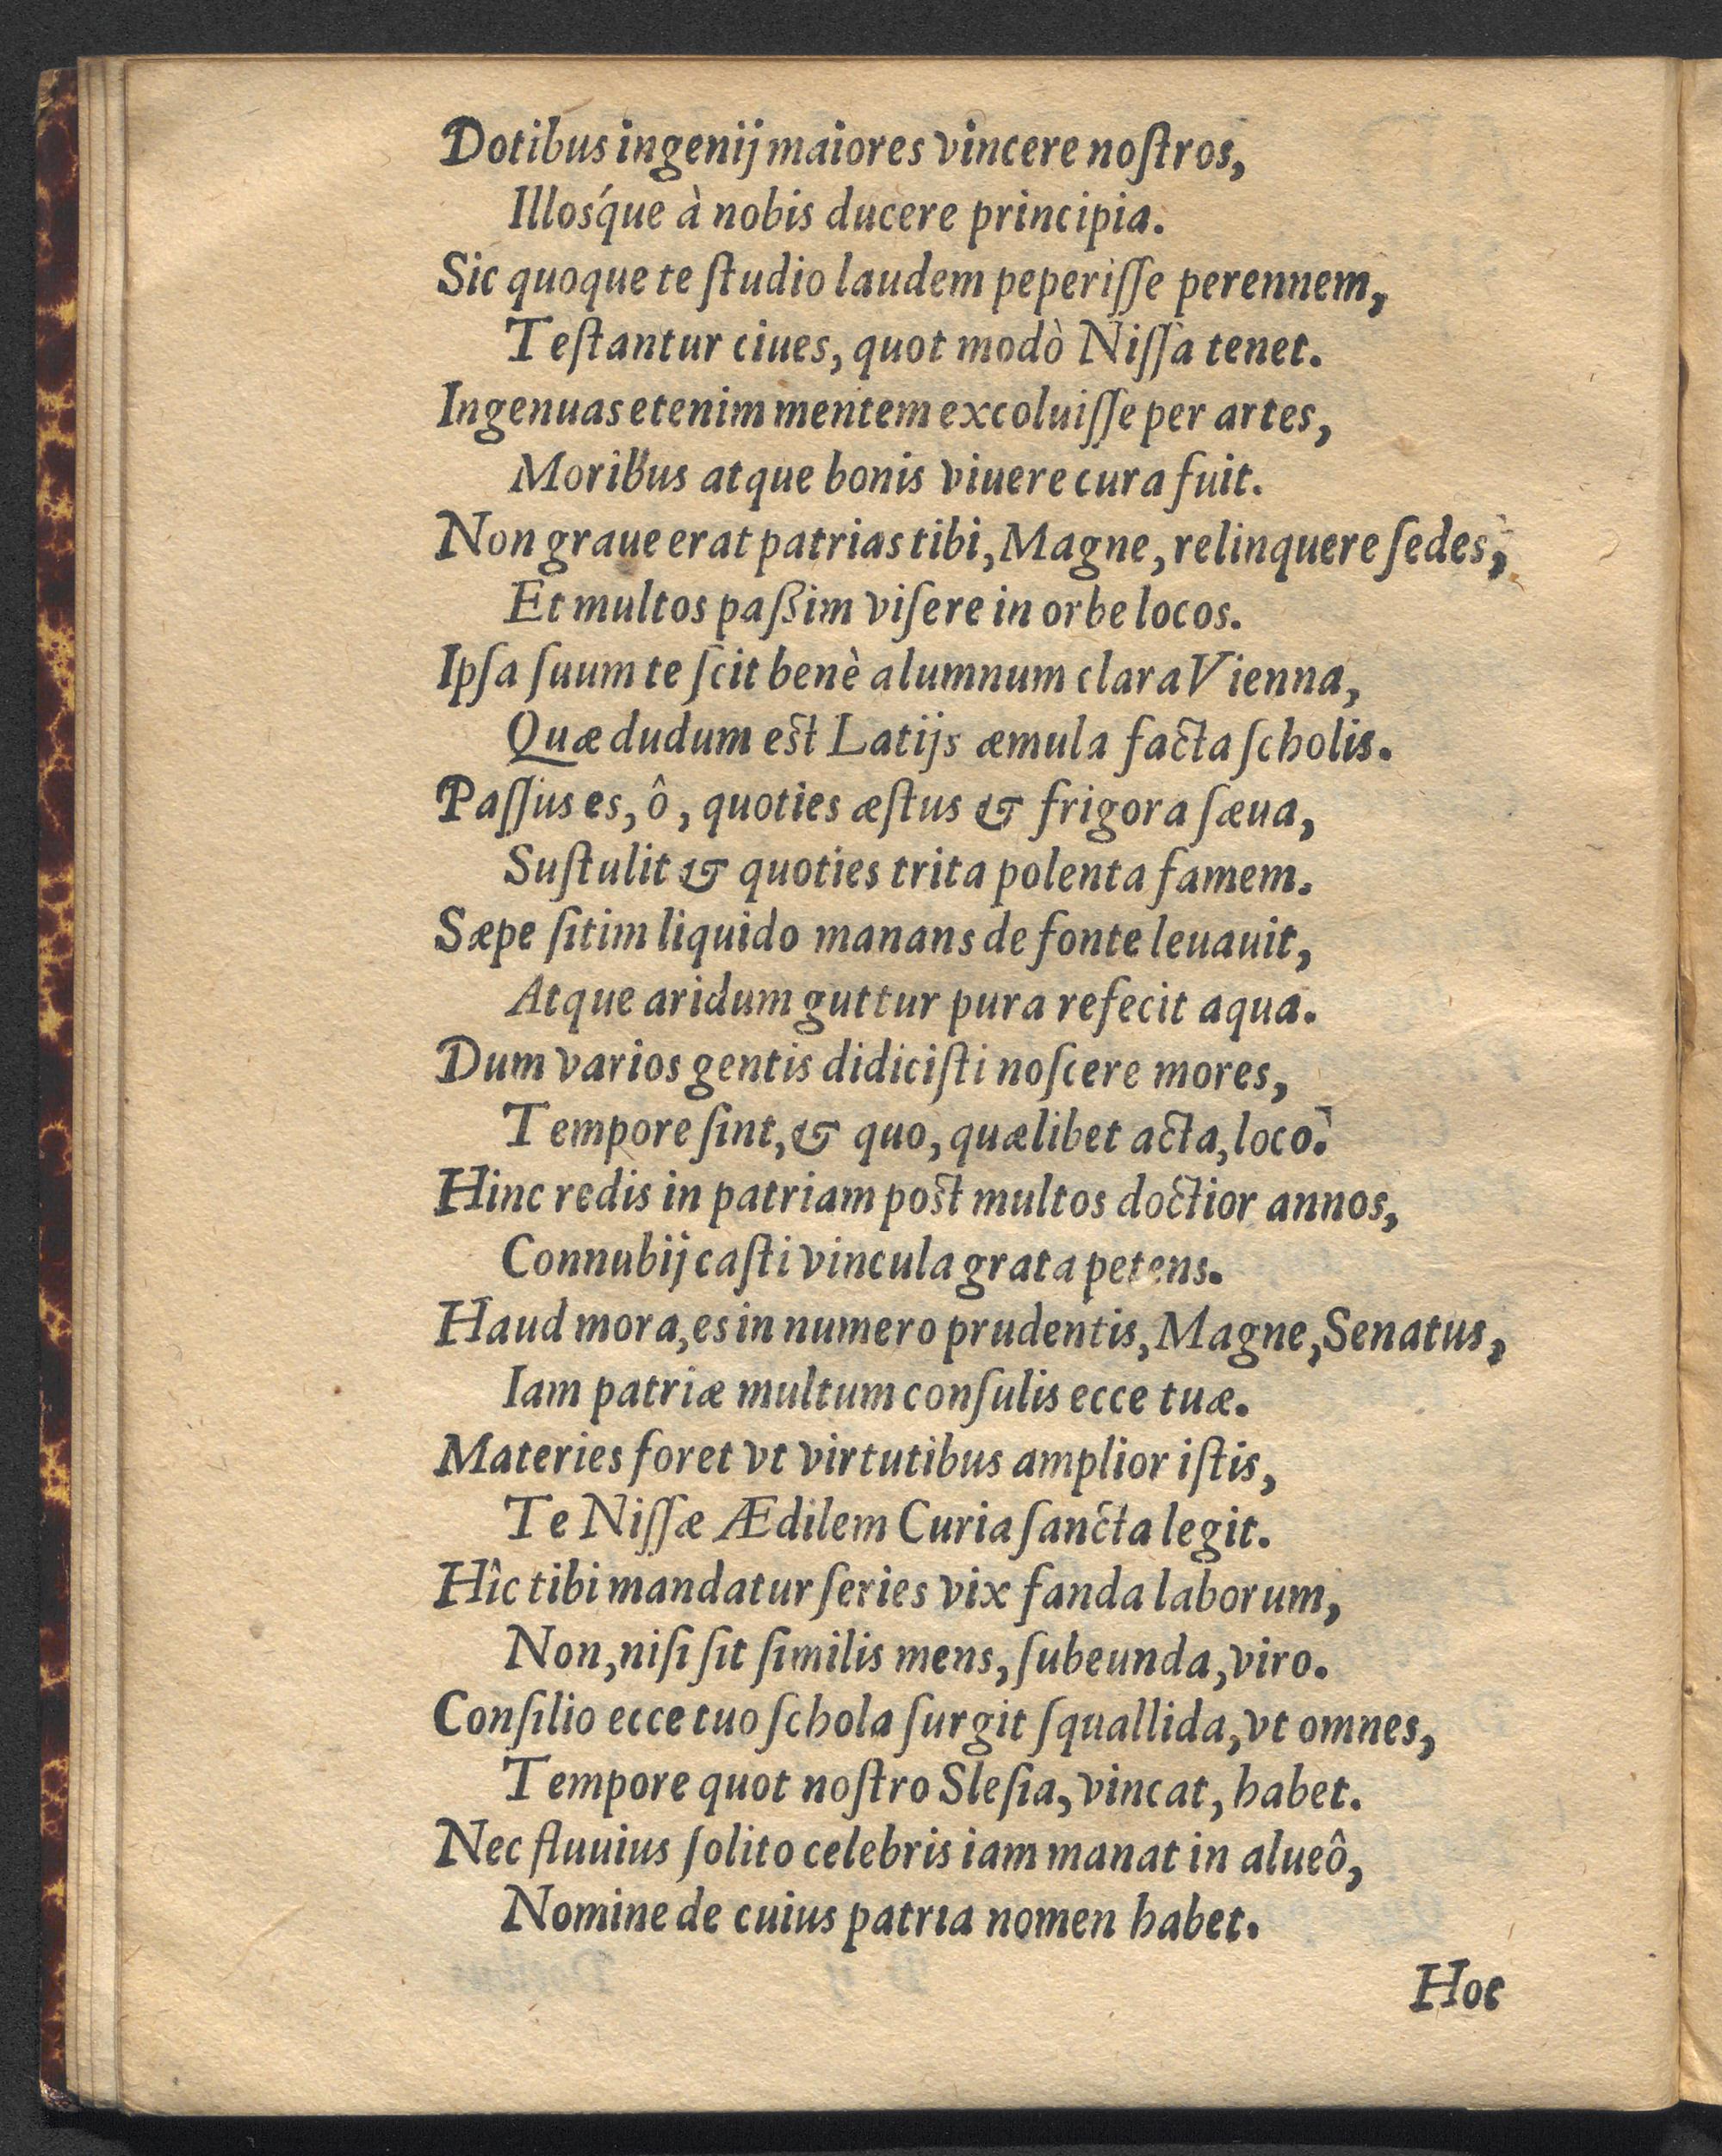 Dotibus ingenij maiores vincere noſtros,
Illosq́ue à nobis ducere principia.
Sic quoque te ſtudio laudem peperiſſe perennem,
Teſtantur ciues, quot modò Niſſa tenet.
Ingenuas etenim mentem excoluiſſe per artes,
Moribus atque bonis viuere cura fuit.
Non graue erat patrias tibi, Magne, relinquere ſedes,
Et multos paßim viſere in orbe locos.
Ipſa ſuum te ſcit benè alumnum clara Vienna,
Quæ dudum eſt Latijs æmula facta ſcholis.
Paſſus es, ô, quoties æſtus & frigora ſæua,
Suſtulit & quoties trita polenta famem.
Sæpe ſitim liquido manans de fonte leuauit,
Atque aridum guttur pura refecit aqua.
Dum varios gentis didiciſti noſcere mores,
Tempore ſint, & quo, quælibet acta, loco.
Hinc redis in patriam poſt multos doctior annos,
Connubij caſti vincula grata petens.
Haud mora, es in numero prudentis, Magne, Senatus,
Iam patriæ multum conſulis ecce tuæ.
Materies foret vt virtutibus amplior iſtis,
Te Niſſæ Ædilem Curia ſancta legit.
Hîc tibi mandatur ſeries vix fanda laborum,
Non, niſi ſit ſimilis mens, ſubeunda, viro.
Conſilio ecce tuo ſchola ſurgit ſquallida, vt omnes,
Tempore quot noſtro Sleſia, vincat, habet.
Nec fluuius ſolito celebris iam manat in alueô,
Nomine de cuius patria nomen habet.
Hoc